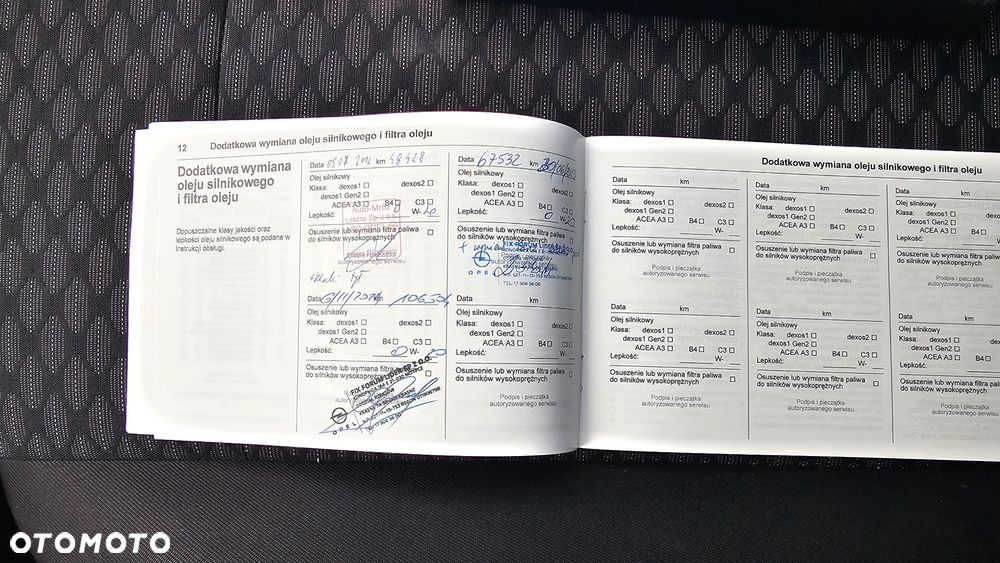 12 Dodatkowa wymiana oleju silnikowego i filtra oleju
Dodatkowa wymiana
oleju silnikowego
i filtra oleju
Dopuszczalne klasy jakości oraz
lepkości oleju silnikowego są podane w
Instrukcji obsługi.
Data km 48428
Olej silnikowy
Klasa: dexos1 dexos2
dexos1 Gen2
ACEA A3 B4 C3
Lepkość: W-20
Auto-Mróz
Leszno Sp. z o.o.
Osuszenie lub wymiana filtra paliwa
do silników wysokoprężnych
autoryzowanego serwisu
Data km
Olej silnikowy
Klasa: dexos1 dexos2
dexos1 Gen2
ACEA A3 B4 C3
Lepkość: 0 W-20
Osuszenie lub wymiana filtra paliwa
do silników wysokoprężnych
FIX FORUM LIDER SP Z O.O.
OPEL
67532 km
Olej silnikowy
Klasa: dexos1 dexos2
dexos1 Gen2
ACEA A3 B4 C3
Lepkość: 0 W-20
Osuszenie lub wymiana filtra paliwa
do silników wysokoprężnych
FIX FORUM LIDER
autoryzowanego serwisu
OPEL
TEL. 17 506 56 00
Data km
Olej silnikowy
Klasa: dexos1 dexos2
dexos1 Gen2
ACEA A3 B4 C3
Lepkość: W-
Osuszenie lub wymiana filtra paliwa
do silników wysokoprężnych
Podpis i pieczątka
autoryzowanego serwisu
Dodatkowa wymiana oleju silnikowego i filtra oleju
Data km
Olej silnikowy
Klasa: dexos1 dexos2
dexos1 Gen2
ACEA A3 B4 C3
Lepkość: W-
Osuszenie lub wymiana filtra paliwa
do silników wysokoprężnych
Podpis i pieczątka
autoryzowanego serwisu
Data km
Olej silnikowy
Klasa: dexos1 dexos2
dexos1 Gen2
ACEA A3 B4 C3
Lepkość: W-
Osuszenie lub wymiana filtra paliwa
do silników wysokoprężnych
Podpis i pieczątka
autoryzowanego serwisu
Data km
Olej silnikowy
Klasa: dexos1 dexos2
dexos1 Gen2
ACEA A3 B4 C3
Lepkość: W-
Osuszenie lub wymiana filtra paliwa
do silników wysokoprężnych
Podpis i pieczątka
autoryzowanego serwisu
Data km
Olej silnikowy
Klasa: dexos1 dexos2
dexos1 Gen2
ACEA A3 B4 C3
Lepkość: W-
Osuszenie lub wymiana filtra paliwa
do silników wysokoprężnych
Podpis i pieczątka
autoryzowanego serwisu
Data km
Olej silnikowy
Klasa: dexos1
dexos1 Gen2
ACEA A3
Lepkość:
Osuszenie lub wymiana filtra
do silników wysokoprężnych
Podpis i pieczątka
autoryzowanego
Data km
Olej silnikowy
Klasa: dexos1
dexos1 Gen2
ACEA A3
Lepkość:
Osuszenie lub wymiana
do silników wysokoprężnych
Podpis i
autoryzowanego
OTOMOTO